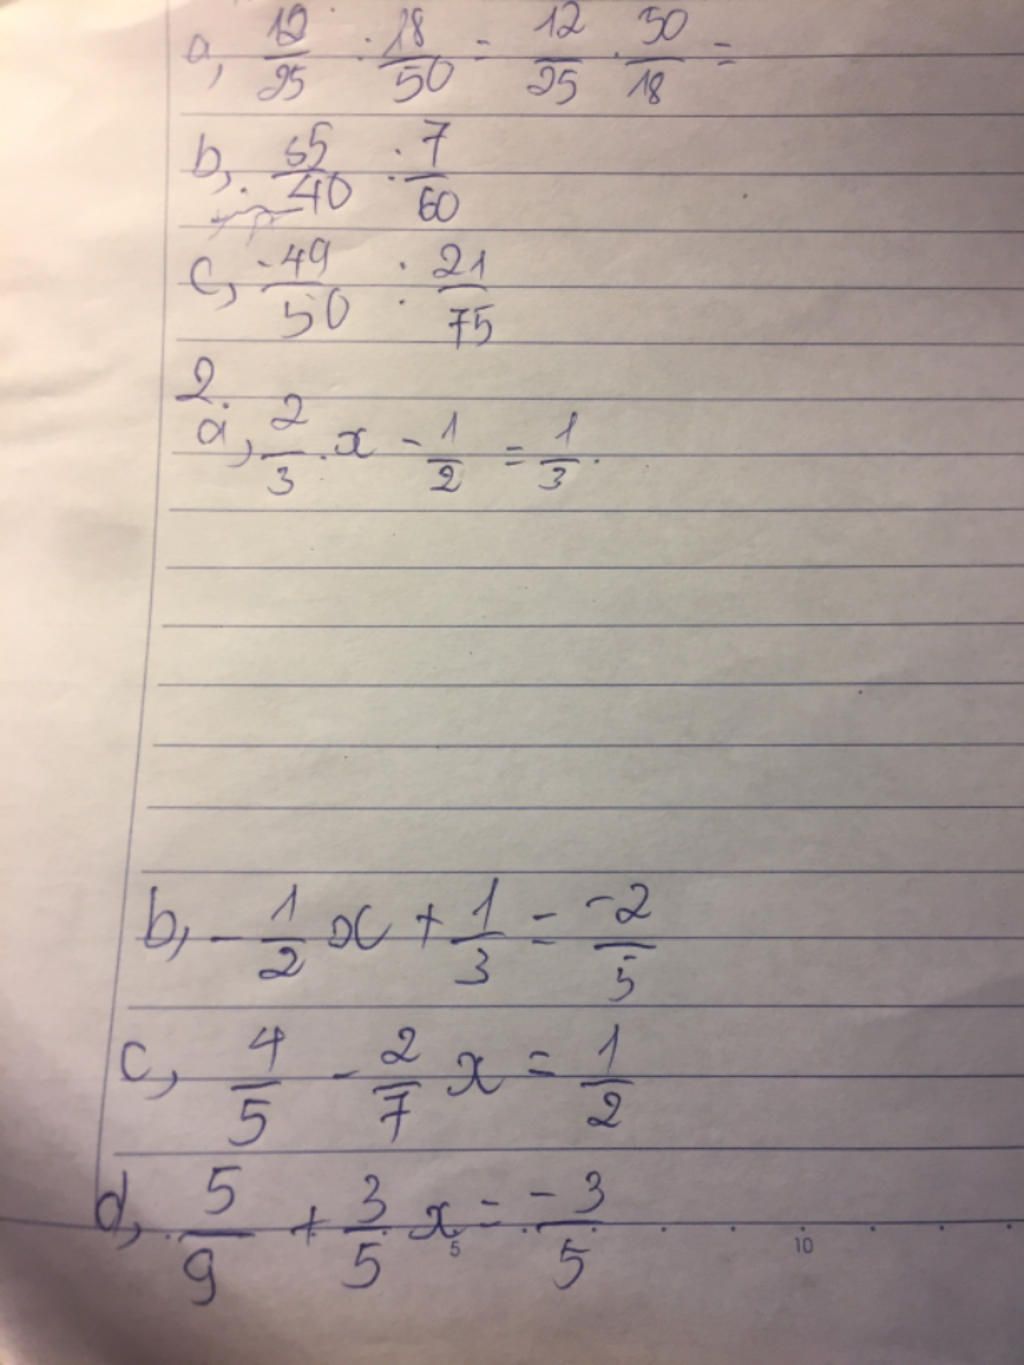 a, 12/25 : 18/50 = 12/25 . 50/18 =
b, 55/40 : 7/60
c, -49/50 : 21/75
2.
a, 2/3 . x - 1/2 = 1/3.
b, - 1/2 x + 1/3 = -2/5
c, 4/5 - 2/7 x = 1/2
d, 5/9 + 3/5 x = -3/5
5 10